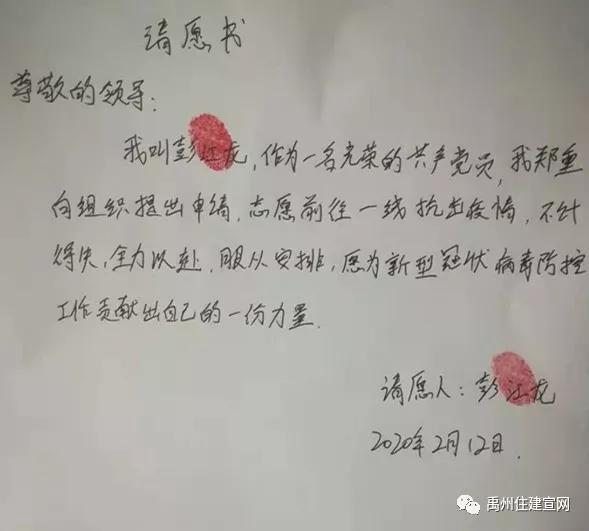 请愿书
尊敬的领导:
我叫彭江龙,作为一名光荣的共产党员,我郑重
向组织提出申请,志愿前往一线抗击疫情,不计
得失,全力以赴,服从安排,愿为新型冠状病毒防控
工作贡献出自己的一份力量.
请愿人:彭江龙
2020年2月12日.
禹州住建宣网